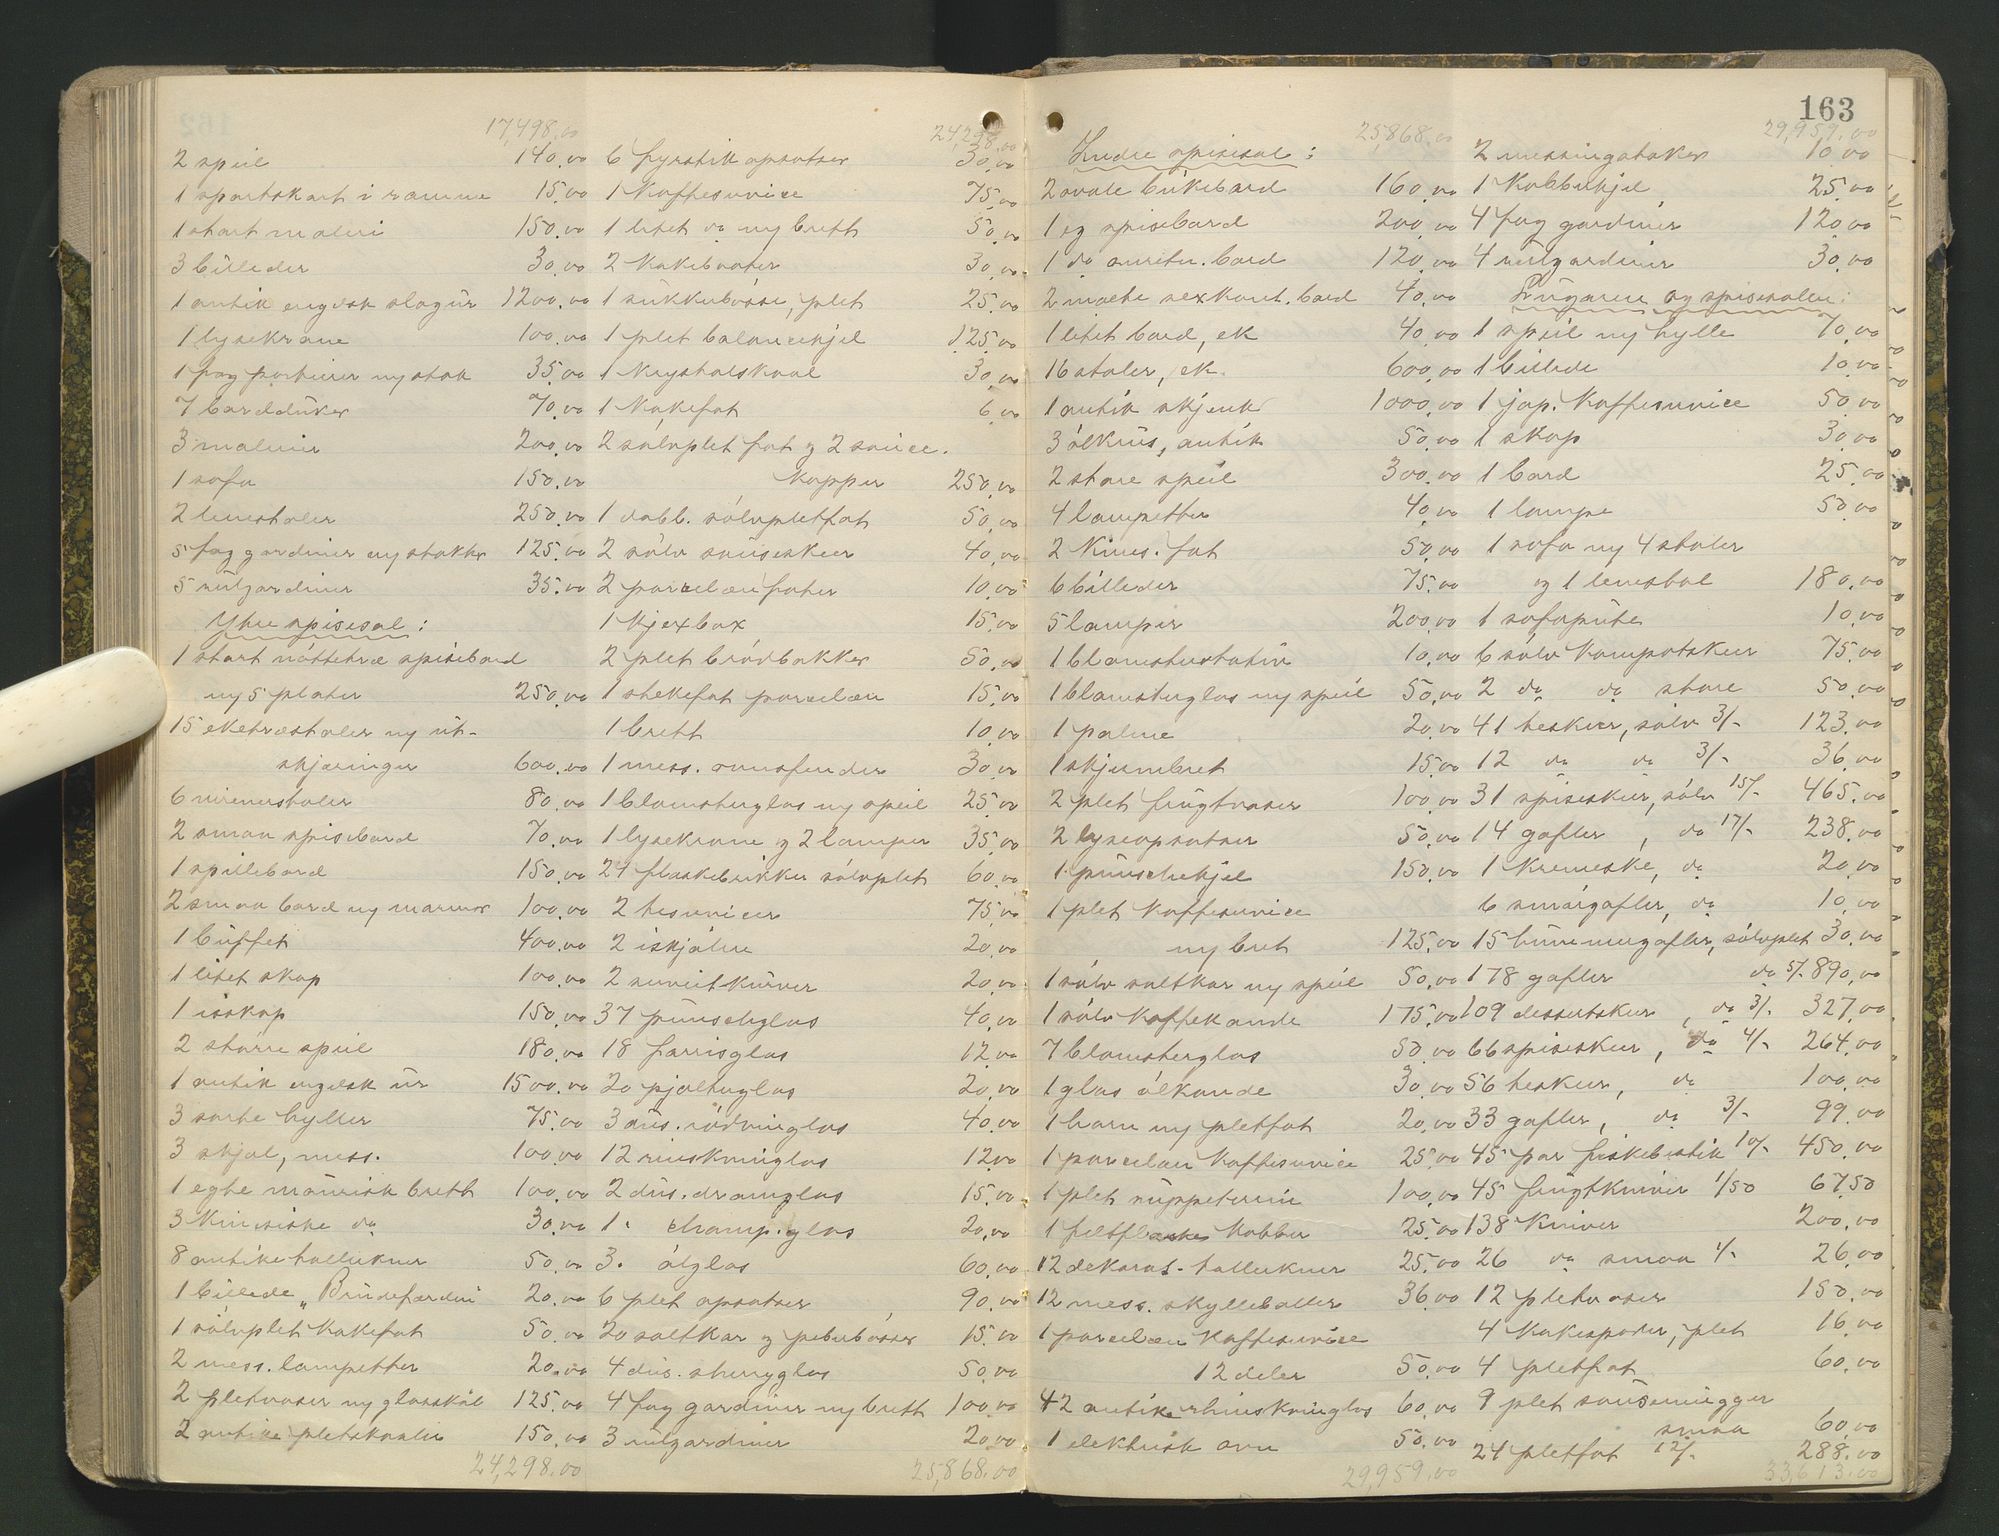 17,498.00
2 speil 140.00
1 sportskart i ramme 15.00
1 stort maleri 150.00
3 billeder 30.00
1 antik engelsk slagur 1200.00
1 lysekrone 100.00
1 fag portierer m/stok 35.00
7 bordduker 70.00
3 malerier 200.00
1 sofa 150.00
2 lenestoler 250.00
5 fag gardiner m/stokker 125.00
5 rulgardiner 35.00
Ytre spisesal:
1 stort nøttetræ spisebord
m/5 plater 250.00
15 eketræstoler m/ut-
skjæringer 600.00
6 wienerstoler 80.00
2 smaa spisebord 70.00
1 spillebord 150.00
2 smaa bord m/marmor 100.00
1 buffet 400.00
1 litet skap 100.00
1 isskap 150.00
2 større speil 180.00
1 antik engelsk ur 1500.00
3 sorte hyller 75.00
3 skjol, mess. 100.00
1 egte maurisk brett 100.00
3 kinesiske do 30.00
8 antike tallerkner 50.00
1 billede "Brudefærden" 20.00
1 sølvplet kakefat 50.00
2 mess. lampetter 20.00
2 pletvaser m/glasskål 125.00
2 antike pletskaaler 150.00
24,298.00
24,298.00
6 fyrstik opsatser 30.00
1 kaffeservice 75.00
1 litet do m/brett 50.00
2 kakebokser 30.00
1 sukkerbøsse, plet 25.00
1 plet balancekjel 125.00
1 krystalskaal 30.00
1 kakefat 6.00
2 sølvplet fat og 2 sauce.
kopper 250.00
1 dobb. sølvpletfat 50.00
2 sølv sauseskeer 40.00
2 porcelæn fater 10.00
1 kjexbox 15.00
2 plet brødbakker 50.00
1 stekefat porcelæn 15.00
1 brett 10.00
1 mess. ovnsfender 30.00
1 blomsterglas m/speil 25.00
1 lysekrone og 2 lamper 35.00
24 flaskebrikker sølvplet 60.00
2 teservicer 75.00
2 iskjølere 20.00
2 serviettkurver 20.00
37 punschglas 40.00
18 farrisglas 12.00
20 pjolterglas 20.00
3 dus. rødvinglas 40.00
12 rinskvinglas 12.00
2 dus. dramglas 15.00
1 " champ.glas 20.00
3 " ølglas 60.00
6 plet opsatser 90.00
20 saltkar og peberbøsser 15.00
4 dus. sherryglas 50.00
4 fag gardiner m/brett 100.00
3 rulgardiner 20.00
25,868.00
163
25,868.00
Indre spisesal:
2 ovale bükebord 160.00
1 eg spisebord 200.00
1 do anretn. bord 120.00
2 malte sexkant. bord 40.00
1 litet bord, ek 40.00
16 stoler, ek. 600.00
1 antik skjenk 1000.00
3 ølkrus, antik 50.00
2 store speil 300.00
4 lampetter 40.00
2 kines. fat 50.00
6 billeder 75.00
5 lamper 200.00
1 blomsterstativ 10.00
1 blomsterglas m/speil 50.00
1 palme 20.00
1 skjermbret 15.00
2 plet frugtvaser 100.00
2 lyseopsatser 50.00
1 punschekjel 150.00
1 plet kaffeservice
m/bret 125.00
1 sølv saltkar m/speil 50.00
1 sølv kaffekande 175.00
7 blomsterglas 50.00
1 glas ølkande 30.00
1 horn m/pletfat 20.00
1 porcelæn kaffeservice 25.00
1 plet suppeterrin 100.00
1 feltflaske kobber 25.00
12 dekorat. tallerkner 25.00
12 mess. skylleboller 36.00
1 porcelæn kaffeservice
12 deler 50.00
42 antike rhinskvinglas 60.00
1 elektrisk ovn 50.00
29,959.00
29,959.00
2 messingstaker 10.00
1 kobberkjel 25.00
4 fag gardiner 120.00
4 rulgardiner 30.00
Lugaren og spisesalen:
1 speil m/hylle 70.00
1 billede 10.00
1 jap. kaffeservice 50.00
1 skap 30.00
1 bord 25.00
1 lampe 50.00
1 sofa m/4 stoler
og 1 lenestol 180.00
1 sofapute 10.00
6 sølv kompotskeer 75.00
2 do do store 50.00
41 teskeer, sølv 3/- 123.00
12 do do 3/- 36.00
31 spiseskeer, sølv 15/- 465.00
14 gafler, do 17/- 238.00
1 kremeske, do 20.00
6 smørgafler, do 10.00
15 hummergafler, sølvplet 30.00
178 gafler do 5/- 890.00
109 dessertskeer, do 3/- 327.00
66 spiseskeer, do 4/- 264.00
56 teskeer, do 100.00
33 gafler, do 3/- 99.00
45 par fiskebestik 10/- 450.00
45 frugtkniver 1/50 67.50
138 kniver 200.00
26 do smaa 1/- 26.00
12 pletvaser 150.00
4 kakespader, plet 16.00
4 pletfat 60.00
9 plet sausemugger
smaa 60.00
24 pletfat 12/- 288.00
33,613.00